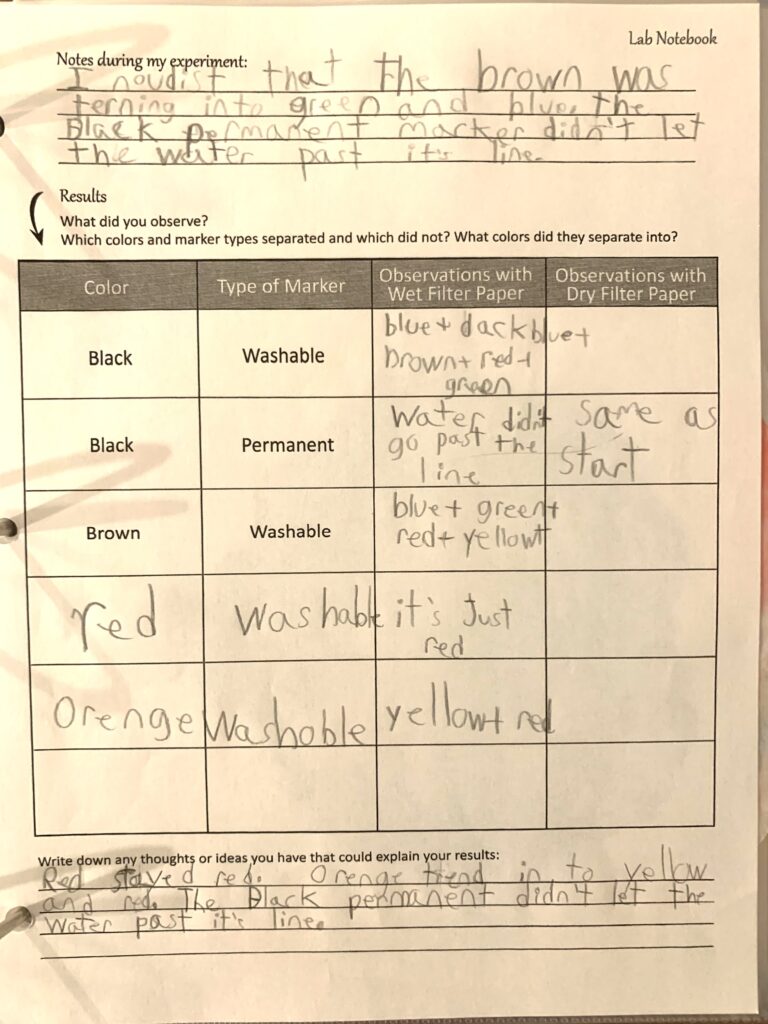 Lab Notebook
Notes during my experiment:
I noudist that the brown was
terning into green and blue. the
Black permanent marker didn't let
the water past it's line.
Results
What did you observe?
Which colors and marker types separated and which did not? What colors did they separate into?
Color Type of Marker Observations with Wet Filter Paper Observations with Dry Filter Paper
Black Washable blue+ dackblue+
brown+ red+
green
Black Permanent Water didn't same as
go past the start
line
Brown Washable blue+ green+
red+ yellow+
red Washable it's Just
red
Orenge Washoble yellow+ red
Write down any thoughts or ideas you have that could explain your results:
Red stayed red. Orenge trend in to yellow
and red. The Black permanent didn't let the
water past it's line.